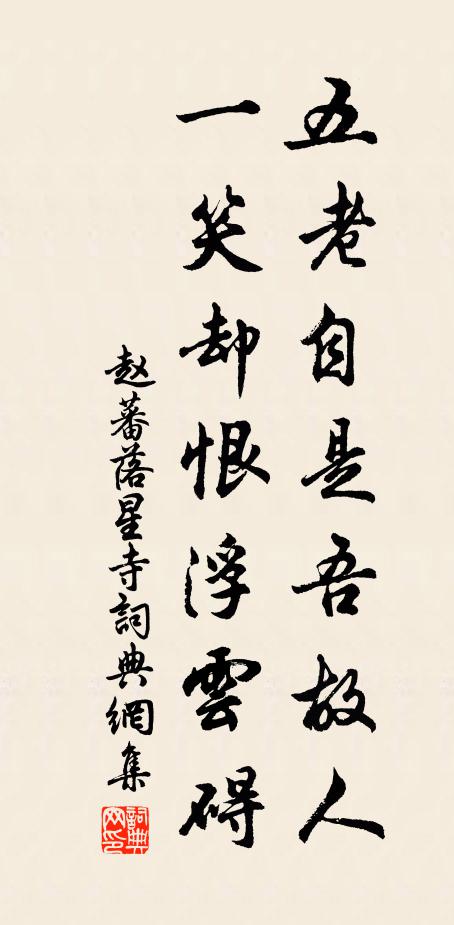 五老自是吾故人
一笑却恨浮雲碍
赵蕃落星寺詞典網集
詞典网印